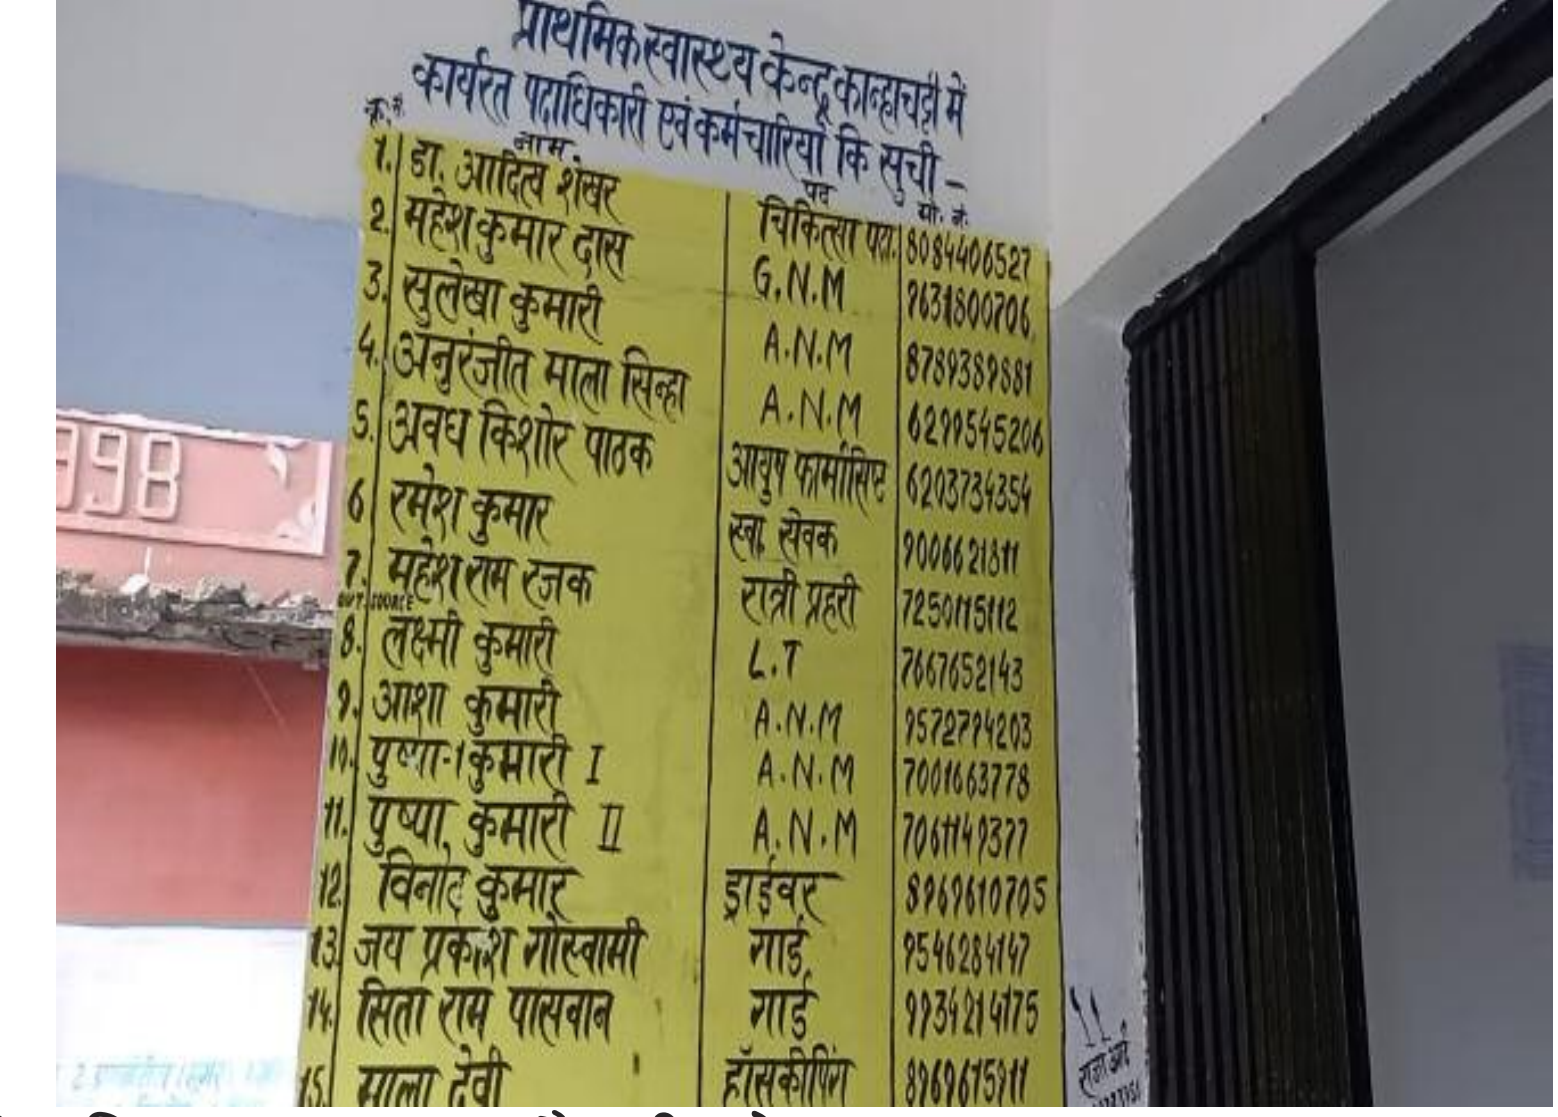 प्राथमिक स्वास्थ्य केन्द्र कान्हाचट्टी में
कार्यरत पदाधिकारी एवं कर्मचारियों कि सुची -
क्र.सं. नाम पद मो. नं.
1. डा. आदित्य शेखर चिकित्सा पदा. 8084406527
2. महेश कुमार दास G.N.M 9631800706
3. सुलेखा कुमारी A.N.M 8789389881
4. अनुरंजीत माला सिन्हा A.N.M 6299545206
5. अवध किशोर पाठक आयुष फार्मासिष्ट 6203734354
6 रमेश कुमार स्वा. सेवक 9006621811
7. महेश राम रजक रात्री प्रहरी 7250115112
OUT SOURCE
8. लक्ष्मी कुमारी L.T 7667652143
9. आशा कुमारी A.N.M 9572794203
10. पुष्पा-1 कुमारी I A.N.M 7001663778
11. पुष्पा कुमारी II A.N.M 7061149377
12. विनोद कुमार ड्राईवर 8969610705
13. जय प्रकाश गोस्वामी गार्ड 9546284147
14. सिता राम पासवान गार्ड 9934214175
15. माला देवी हॉसकीपिंग 8969615911
998
राजा आर्ट